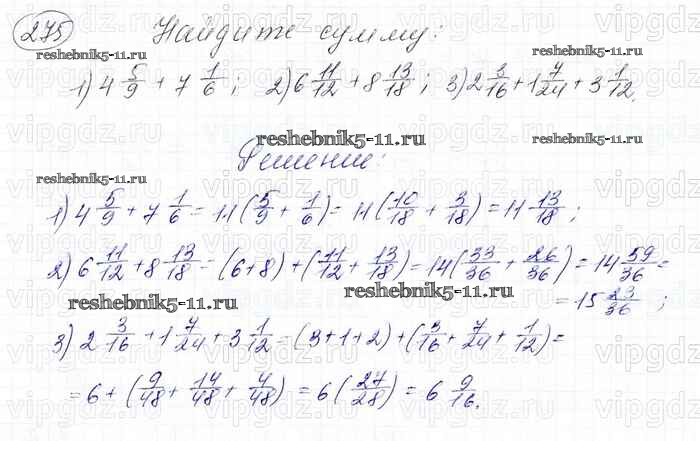 275 Найдите сумму:
reshebnik5-11.ru
1) 4 5/9 + 7 1/6 ; 2) 6 11/12 + 8 13/18 ; 3) 2 3/16 + 1 7/24 + 3 1/12.
reshebnik5-11.ru
reshebnik5-11.ru
reshebnik5-11.ru
Решение:
reshebnik5-11.ru
1) 4 5/9 + 7 1/6 = 11(5/9 + 1/6) = 11(10/18 + 3/18) = 11 13/18 ;
2) 6 11/12 + 8 13/18 = (6+8) + (11/12 + 13/18) = 14(33/36 + 26/36) = 14 59/36 =
reshebnik5-11.ru
reshebnik5-11.ru
= 15 23/36 ;
3) 2 3/16 + 1 7/24 + 3 1/12 = (3+1+2) + (3/16 + 7/24 + 1/12) =
= 6 + (9/48 + 14/48 + 4/48) = 6(27/28) = 6 9/16.